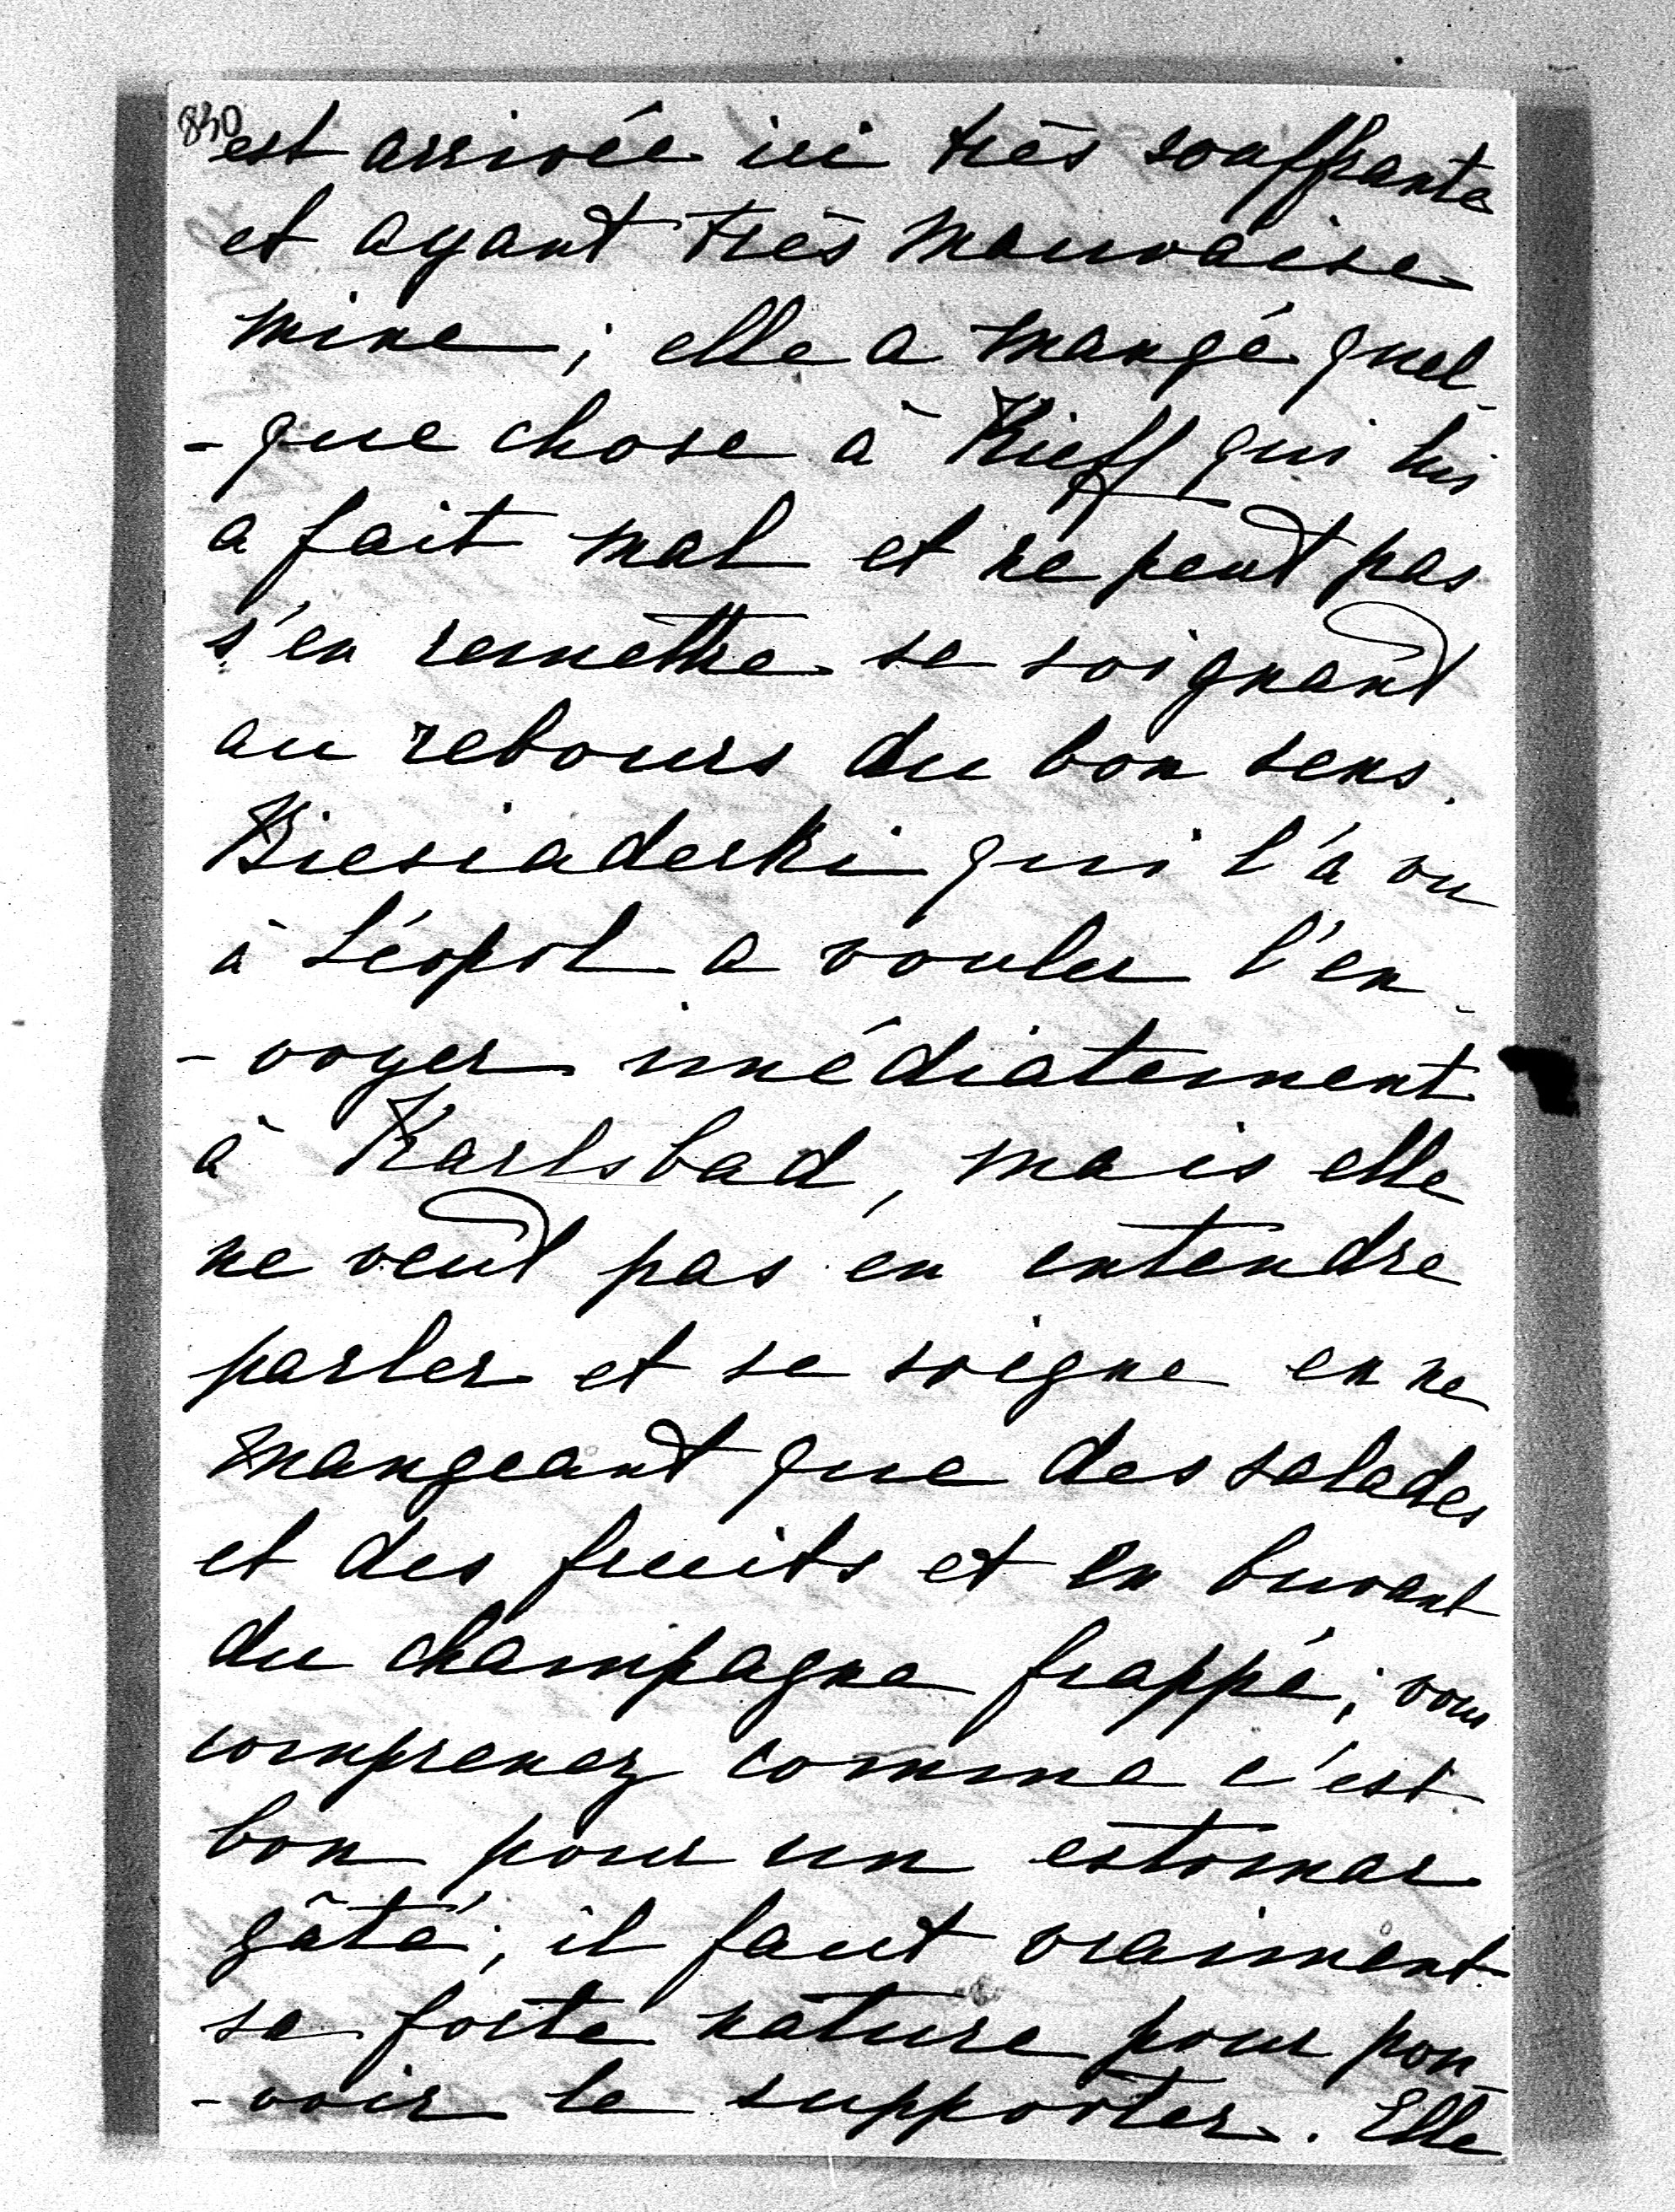 830
est arrivée ici très souffrante
et ayant très mauvaise
mine ; elle a mangé quel-
-que chose à Kieff qui lui
a fait mal et ne peut pas
s'en remettre se soignant
au rebours du bon sens.
Biesiadecki qui l'a vu
à Léopol a voulu l'en-
-voyer imédiatement
à Karlsbad, mais elle
ne veut pas en entendre
parler et se soigne en ne
mangeant que des salades
et des fruits et en buvant
du champagne frappé ; vous
comprenez comme c'est
bon pour un estomac
gâté ; il faut vraiment
sa forte nature pour pou-
-voir le supporter. Elle